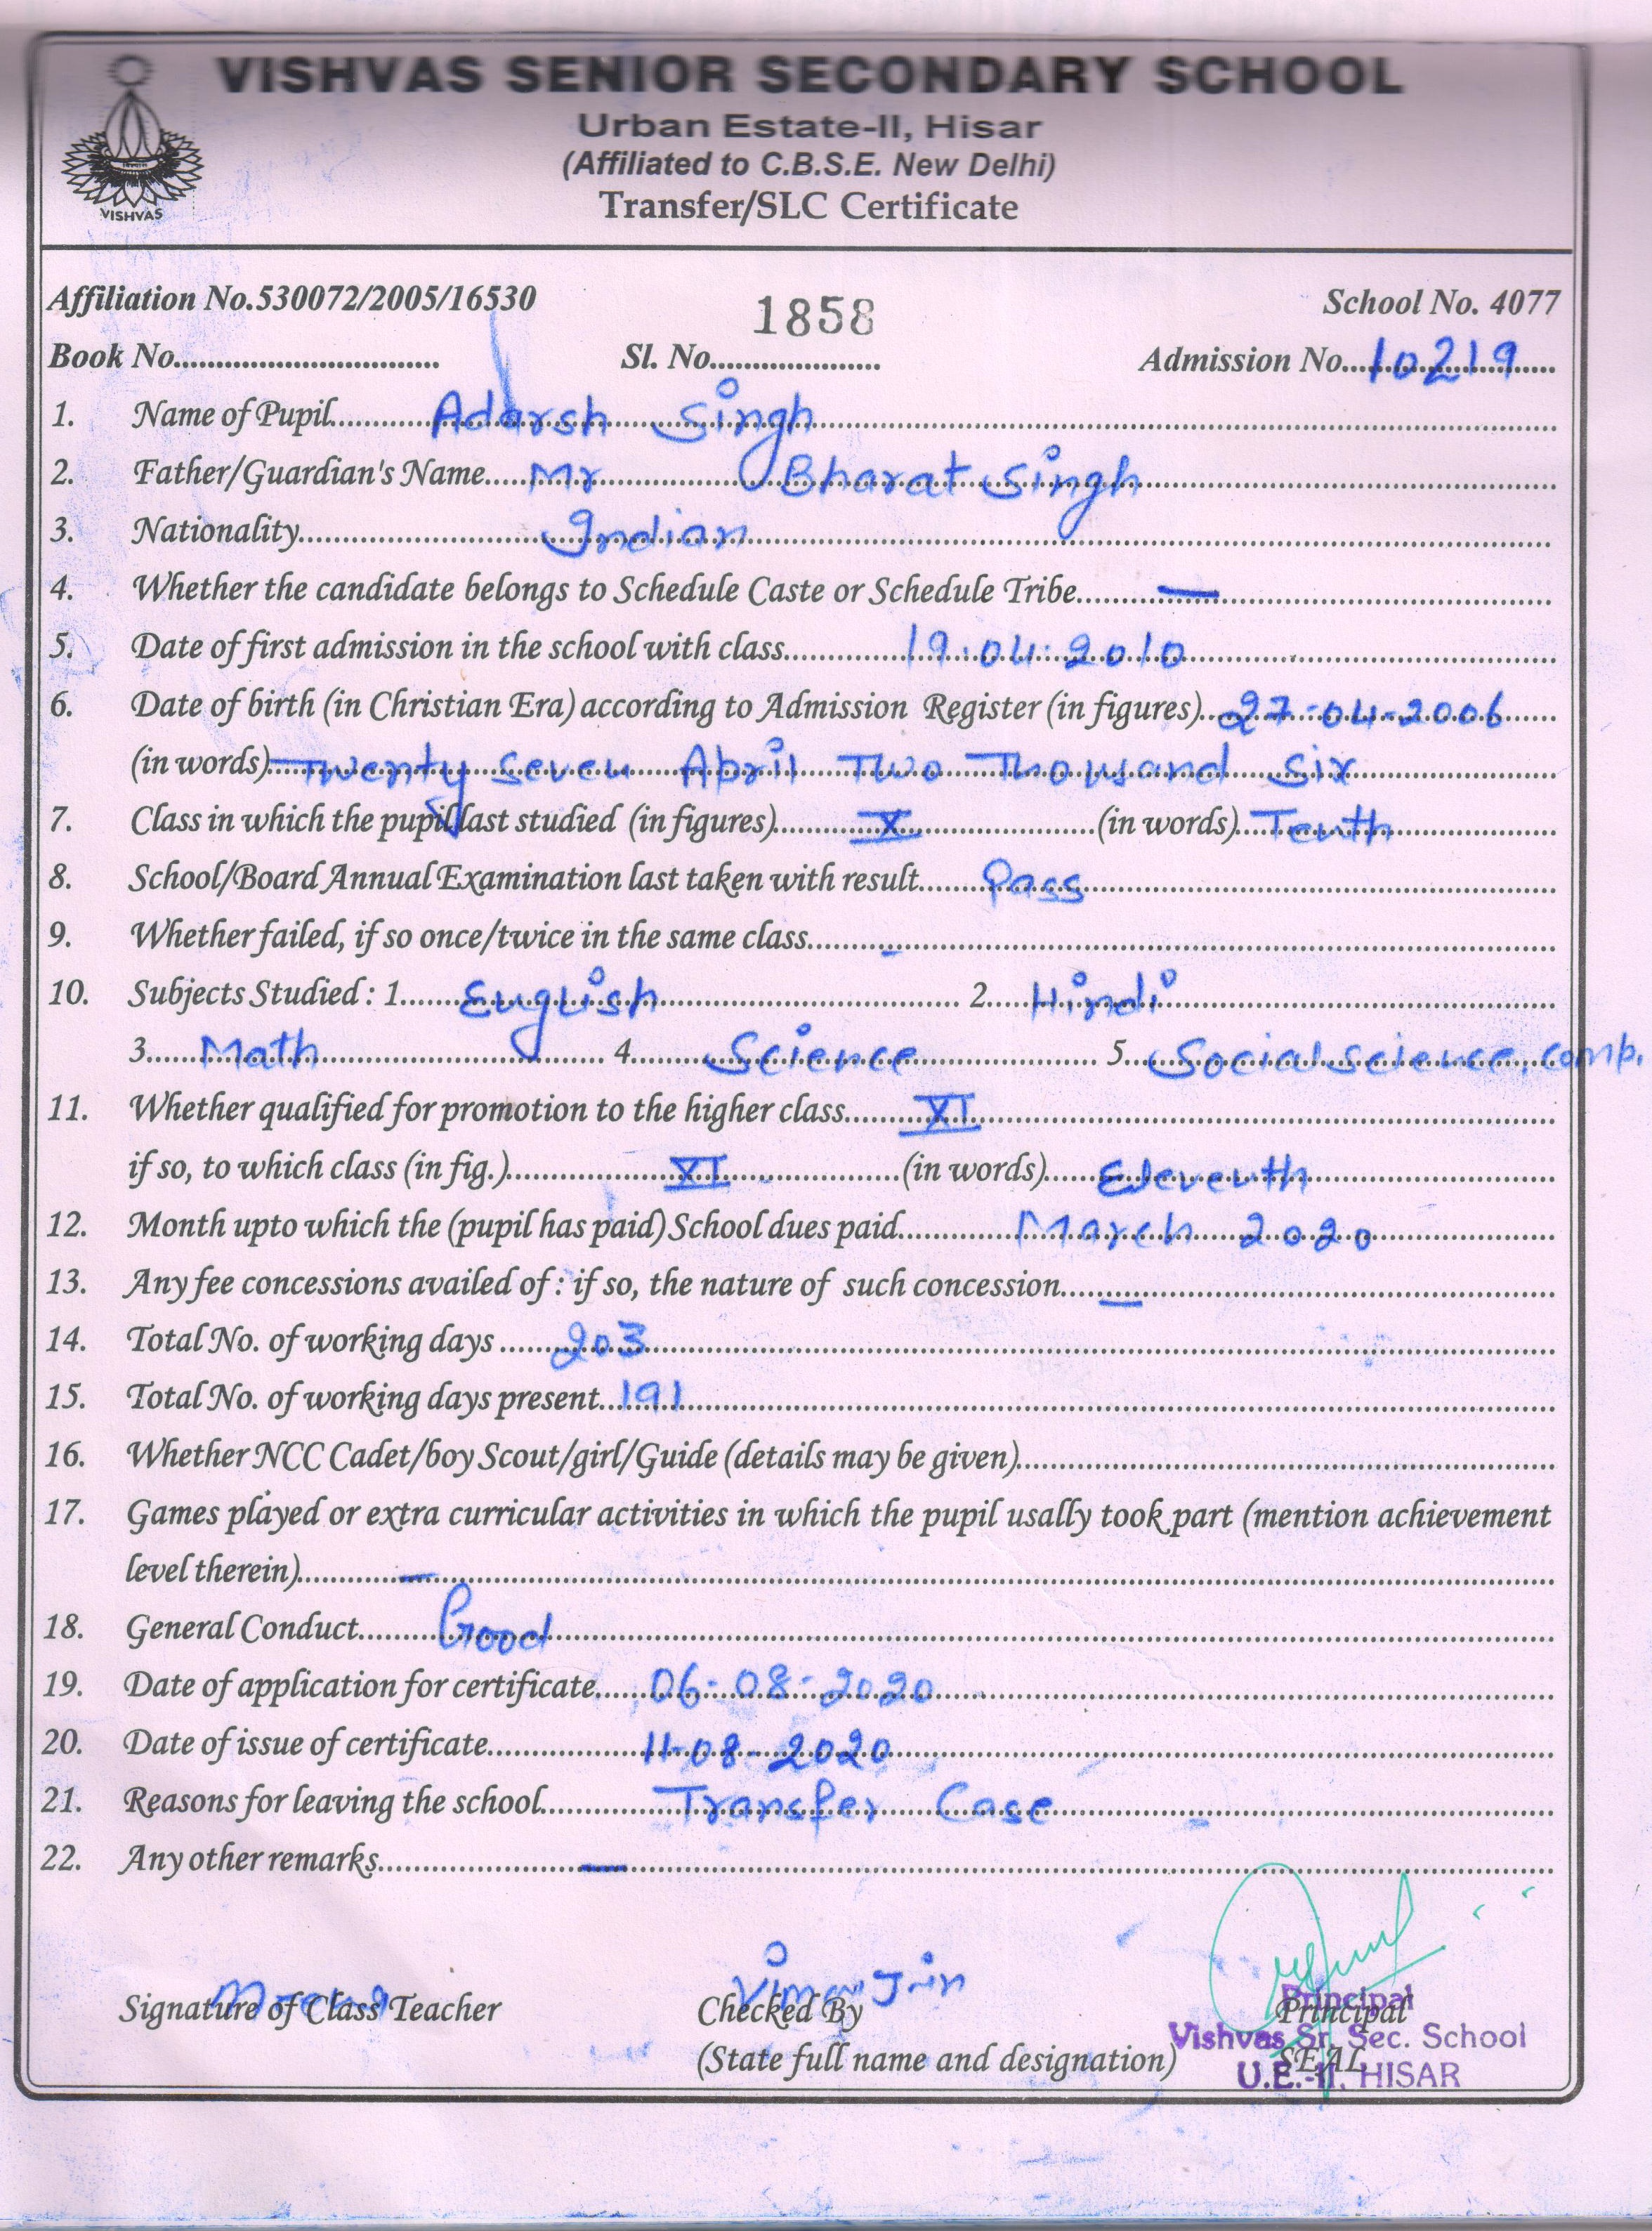 VISHVAS SENIOR SECONDARY SCHOOL
Urban Estate-II, Hisar
(Affiliated to C.B.S.E. New Delhi)
Transfer/SLC Certificate
VISHVAS
Affiliation No.530072/2005/16530 1858 School No. 4077
Book No. Sl. No. Admission No. 10219
1. Name of Pupil Adarsh Singh
2. Father/Guardian's Name Mr Bharat Singh
3. Nationality Indian
4. Whether the candidate belongs to Schedule Caste or Schedule Tribe —
5. Date of first admission in the school with class 19.04.2010
6. Date of birth (in Christian Era) according to Admission Register (in figures) 27-04-2006
(in words) Twenty Seven April Two Thousand Six
7. Class in which the pupil last studied (in figures) X (in words) Tenth
8. School/Board Annual Examination last taken with result Pass
9. Whether failed, if so once/twice in the same class -
10. Subjects Studied : 1 English 2 Hindi
3 Math 4 Science 5 Social science, comp.
11. Whether qualified for promotion to the higher class XI
if so, to which class (in fig.) XI (in words) Eleventh
12. Month upto which the (pupil has paid) School dues paid March 2020
13. Any fee concessions availed of : if so, the nature of such concession —
14. Total No. of working days 203
15. Total No. of working days present 191
16. Whether NCC Cadet/boy Scout/girl/Guide (details may be given)
17. Games played or extra curricular activities in which the pupil usally took part (mention achievement
level therein) —
18. General Conduct Good
19. Date of application for certificate 06-08-2020
20. Date of issue of certificate 11-08-2020
21. Reasons for leaving the school Transfer Case
22. Any other remarks —
Signature of Class Teacher Checked By Principal
Principal
(State full name and designation) SEAL
Vishvas Sr. Sec. School
U.E.-II, HISAR